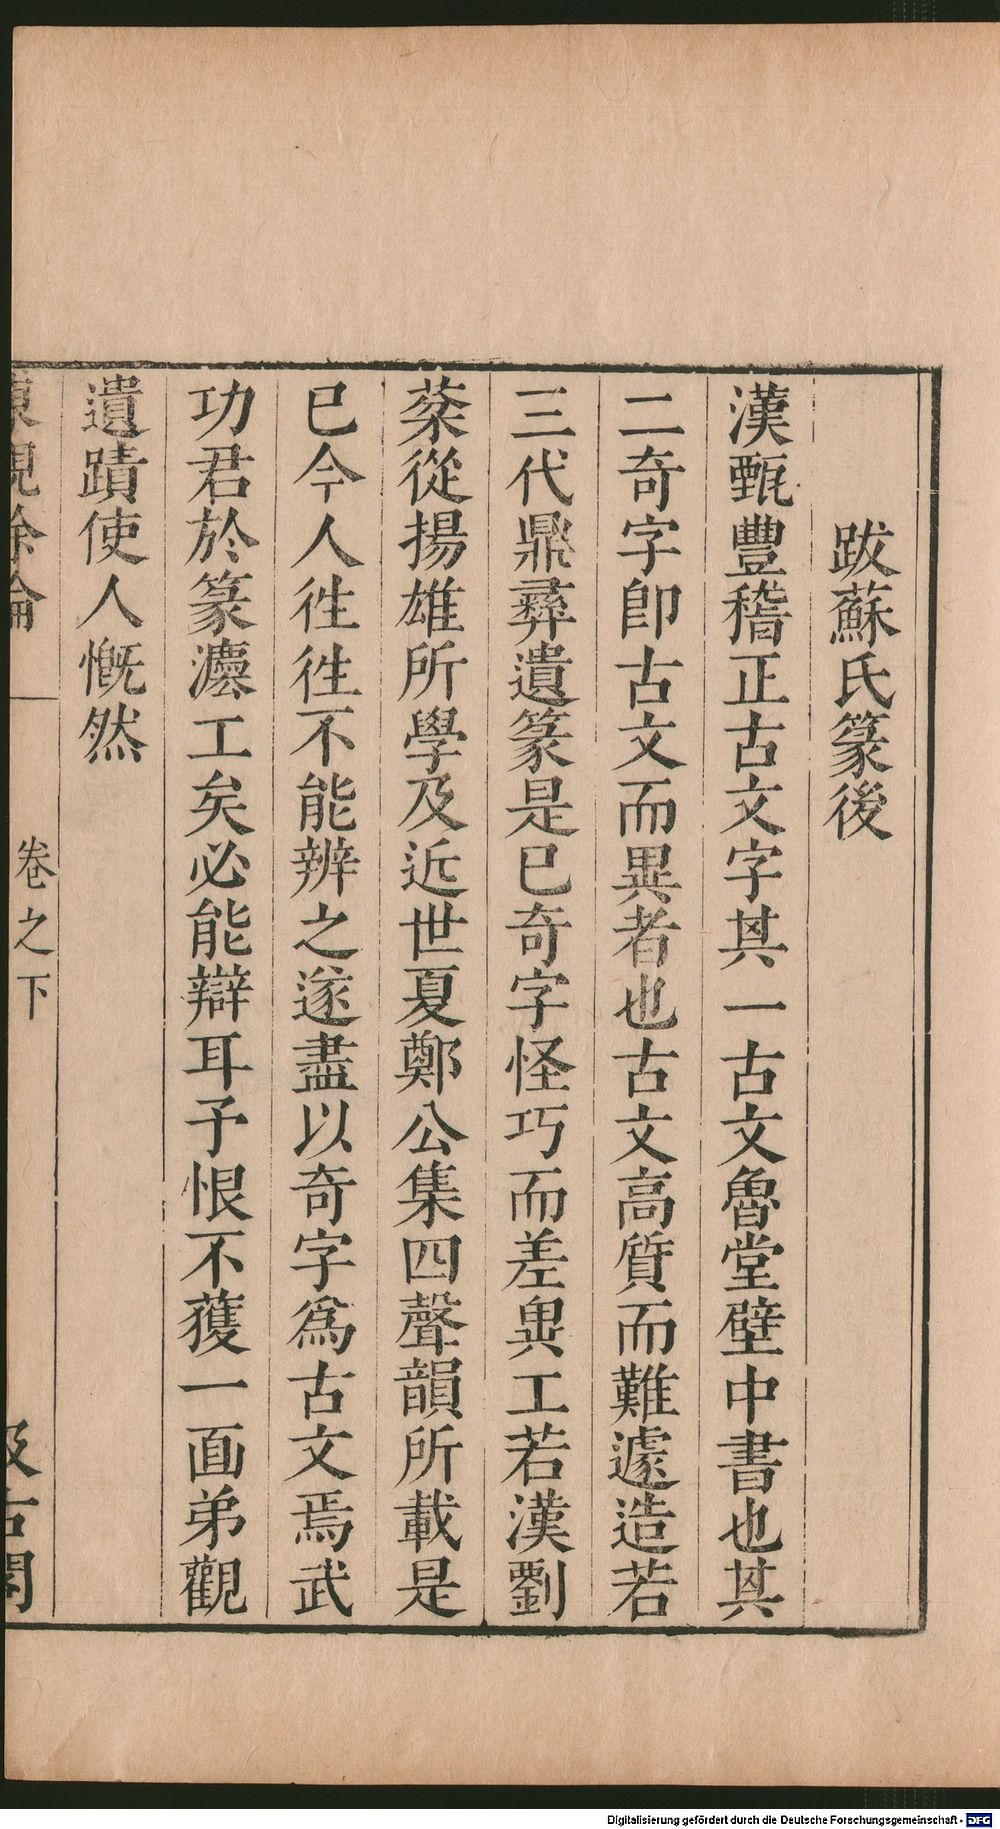 跋蘇氏篆後
漢甄豐稽正古文字其一古文魯堂壁中書也其
二奇字卽古文而異者也古文高質而難遽造若
三代鼎彞遺篆是已奇字怪巧而差異工若漢劉
棻從揚雄所學及近世夏鄭公集四聲韻所載是
已今人徃徃不能辨之遂盡以奇字爲古文焉武
功君於篆灋工矣必能辯耳予恨不獲一面弟觀
遺蹟使人慨然
東觀餘論
卷之下
汲古閣
Digitalisierung gefördert durch die Deutsche Forschungsgemeinschaft - DFG